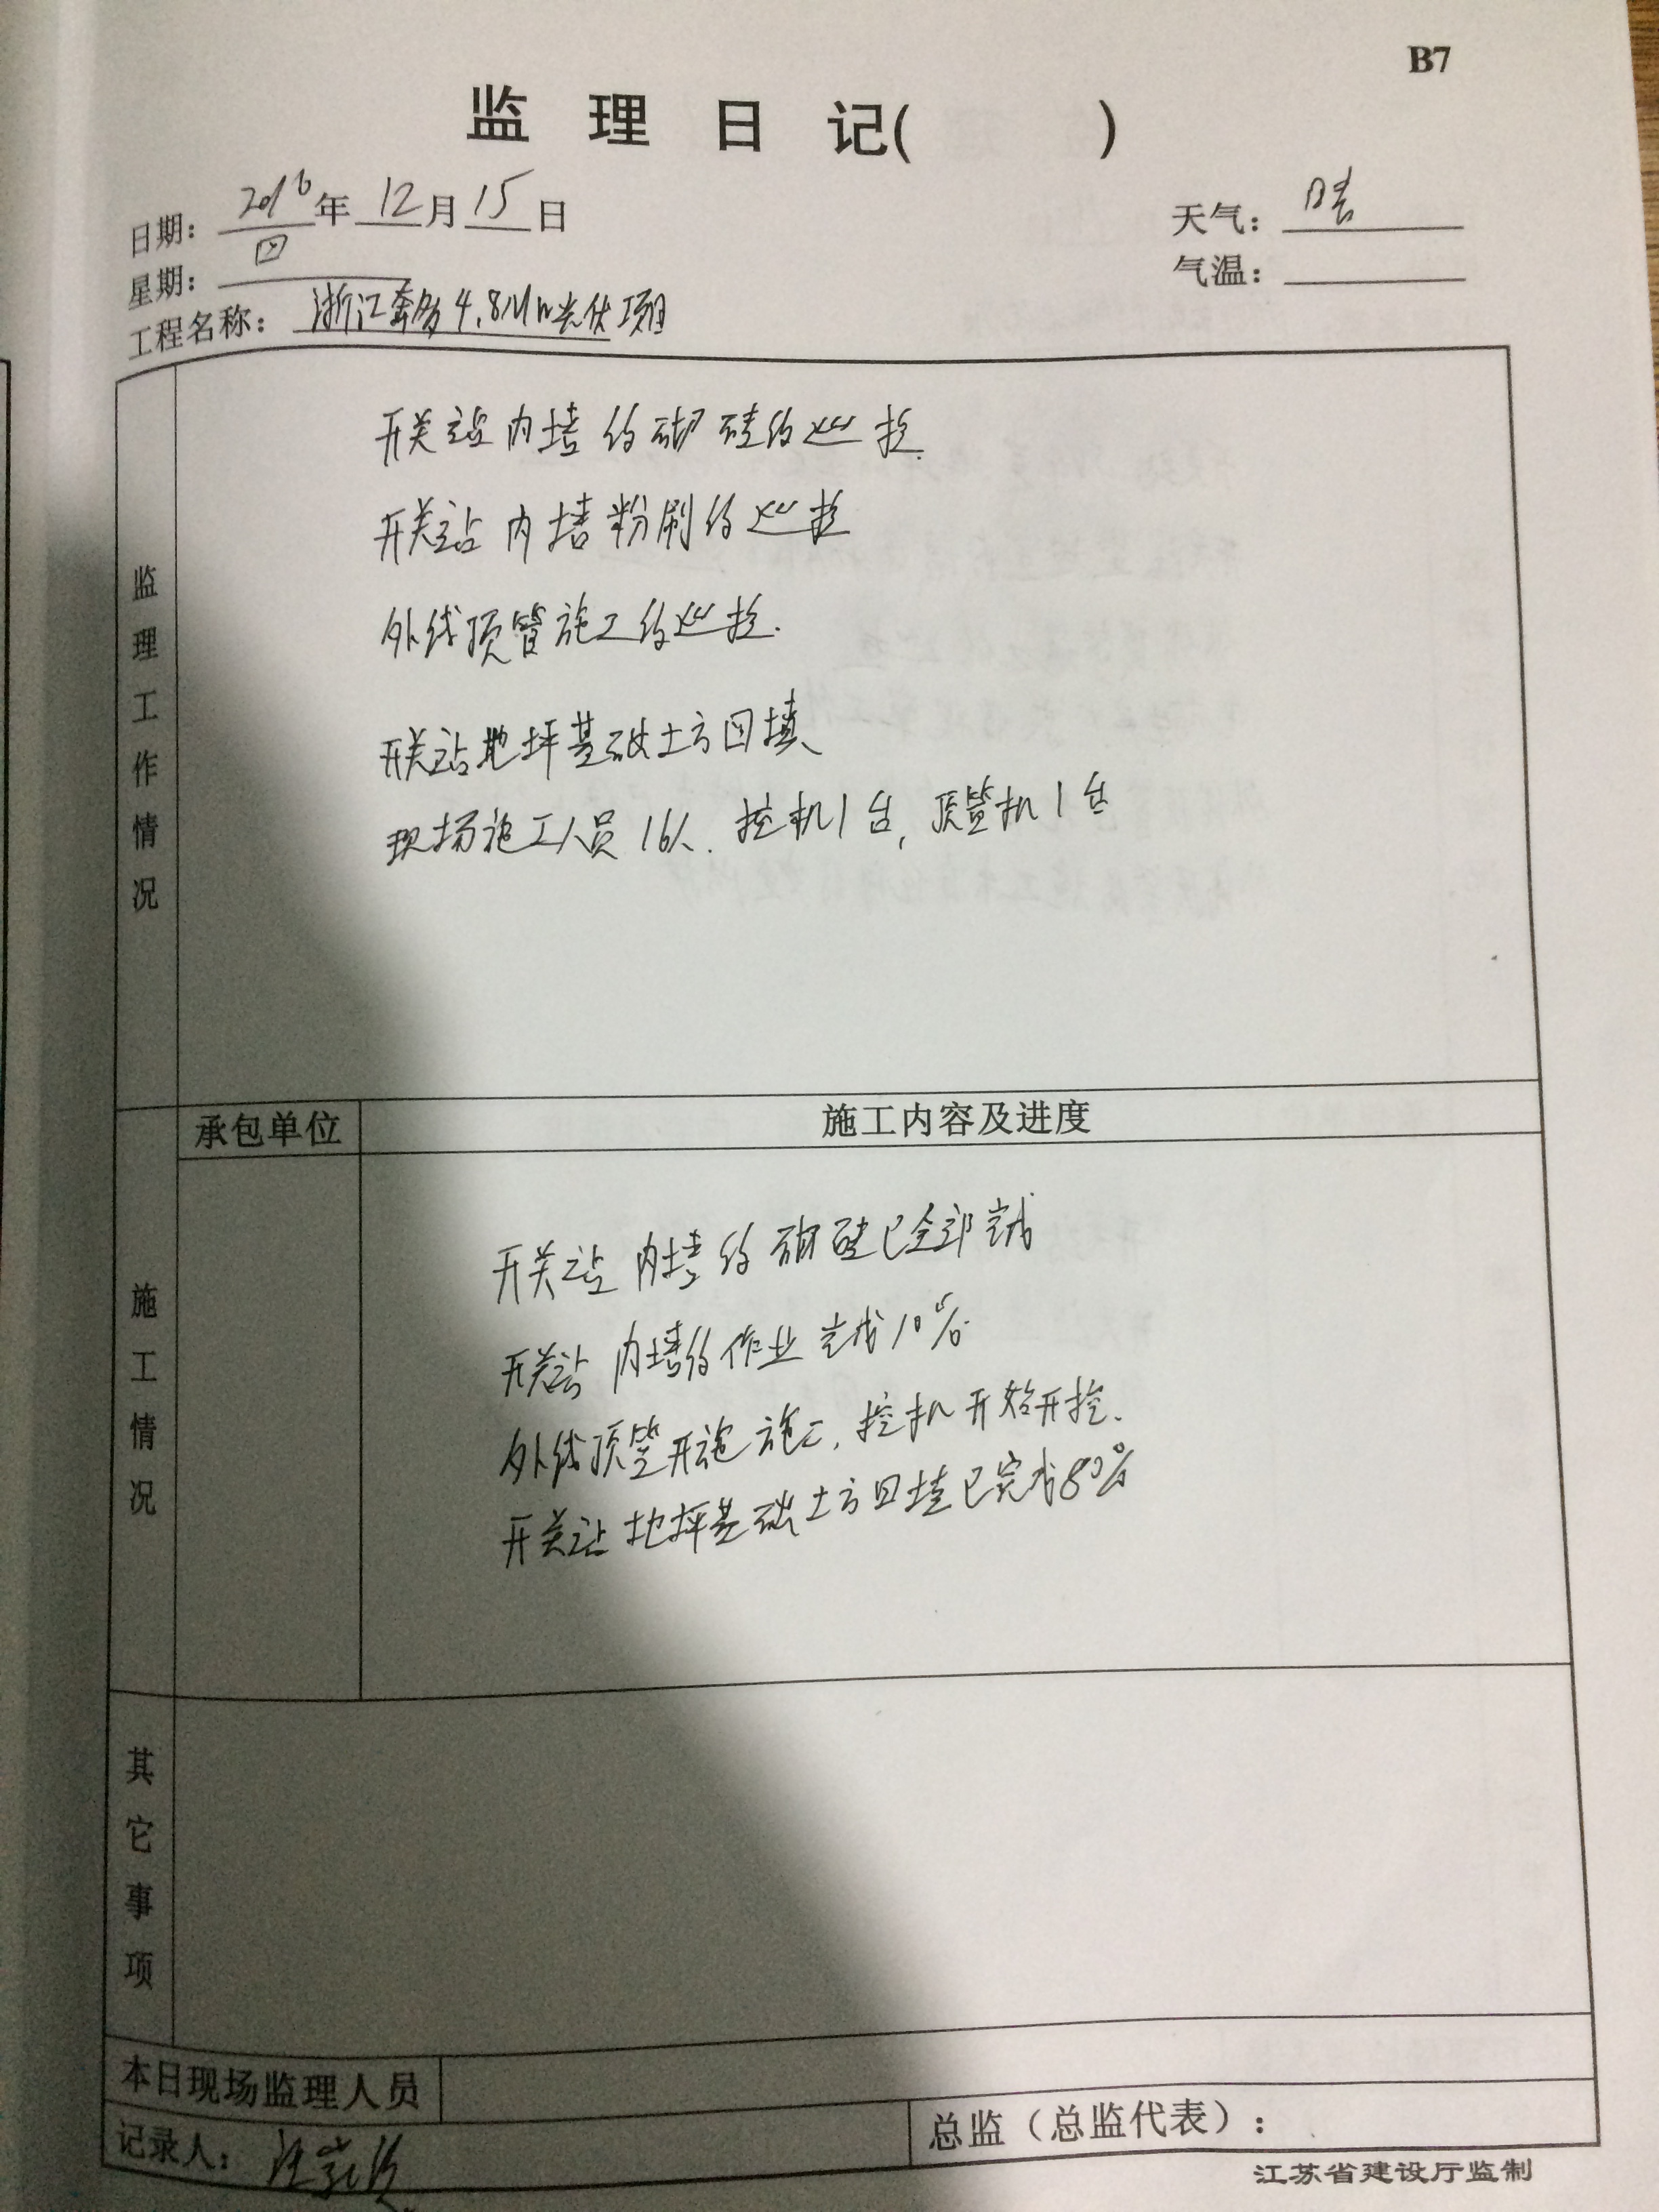 B7
监理日记(        )
日期：2016年12月15日
天气：晴
星期：四
气温：
工程名称：浙江奔多4.8MW光伏项目
监理工作情况
开关站内墙的砌砖的巡检.
开关站内墙粉刷的巡检
外线顶管施工的巡检.
开关站地坪基础土方回填
现场施工人员16人.挖机1台,顶管机1台
承包单位
施工内容及进度
施工情况
开关站内墙的砌砖已全部完成
开关站内墙的作业完成10%.
外线顶管开始施工,挖机开始开挖.
开关站地坪基础土方回填已完成80%
其它事项
本日现场监理人员
记录人：
总监（总监代表）：
江苏省建设厅监制